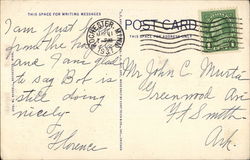 THIS SPACE FOR WRITING MESSAGES
POST CARD
THIS SPACE FOR ADDRESS ONLY
ROCHESTER, MINN.
1
I am just
from the
and I am glad
to say Bob is
still doing
nicely
Florence
Mr John C. Murta
Greenwood Ave
Ft Smith
Ark.